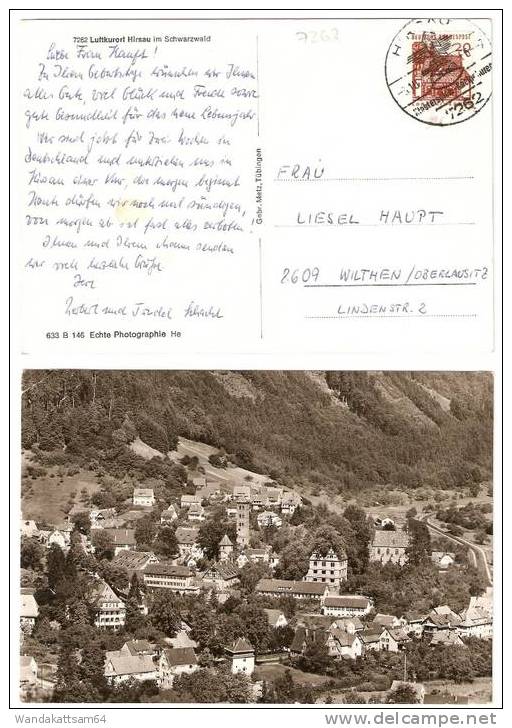 7262 Luftkurort Hirsau im Schwarzwald
7262
DEUTSCHE BUNDESPOST
20
7262
Liebe Frau Haupt!
Zu Ihrem Geburtstage wünschen wir Ihnen
alles Gute, viel Glück und Freude sowie
gute Gesundheit für das neue Lebensjahr.
Wir sind jetzt für drei Wochen in
Deutschland und unterziehen uns in
Hirsau einer Kur, die morgen beginnt
Heute dürfen wir noch mal sündigen,
von morgen ab ist fast alles verboten!
Ihnen und Ihrem Mann senden
wir viele herzliche Grüße
Ihre
und
Gebr. Metz, Tübingen
FRAU
LIESEL HAUPT
8609 WILTHEN/OBERLAUSITZ
LINDENSTR. 2
633 B 146 Echte Photographie He
Wandakattsam64
© www.delcampe.net